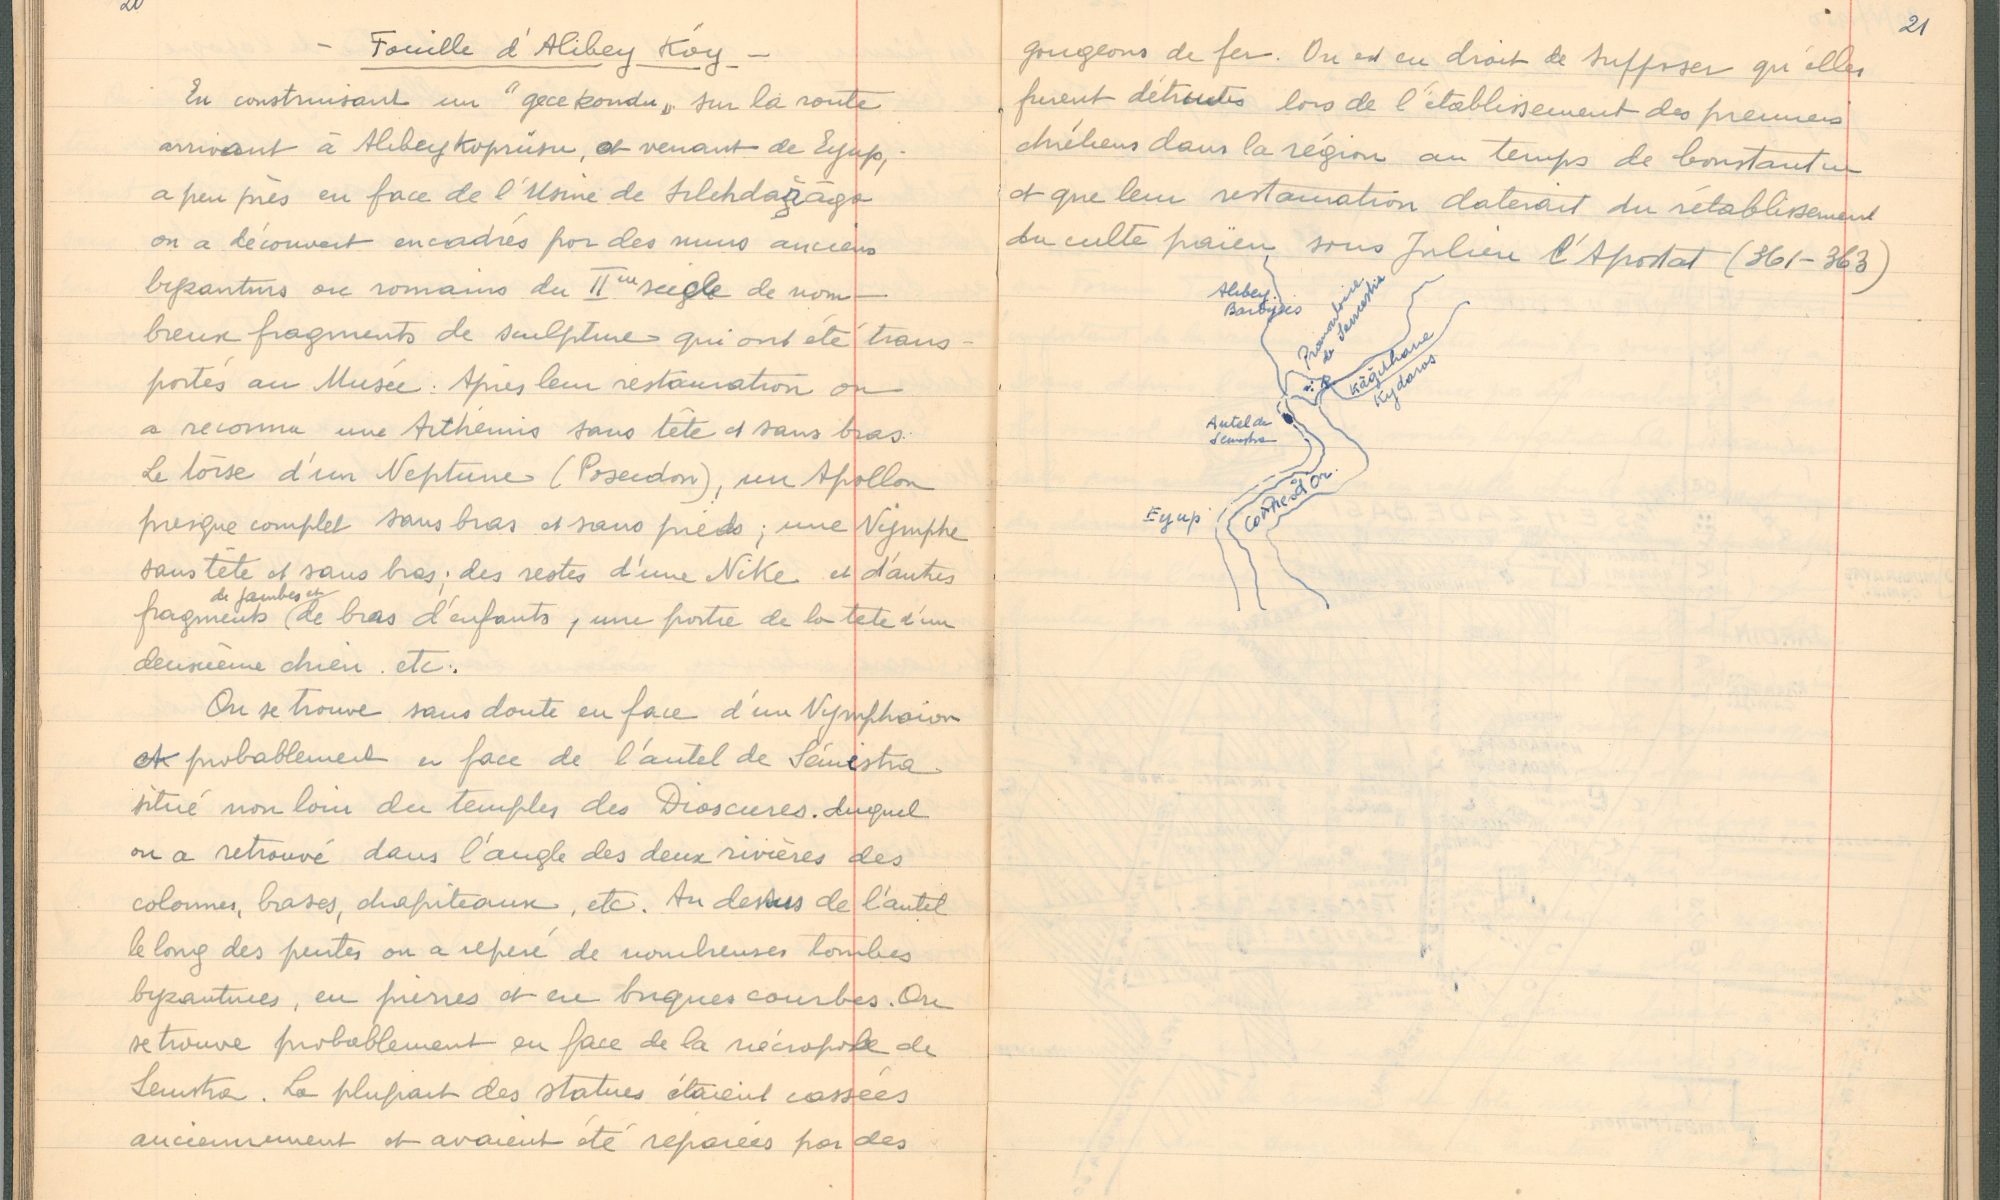 20
- Fouille d'Alibey Köy -
En construisant un "gecekondu" sur la route
arrivant à Alibeykoprüsu, et venant de Eyup,
a peu près en face de l'Usine de Silehdarağa
on a découvert encadrés par des murs anciens
byzantins ou romains du IIme siècle de nom-
breux fragments de sculpture qui ont été trans-
portés au Musée. Après leur restauration on
a reconnu une Arthémis sans tête et sans bras.
Le torse d'un Neptune (Poseidon), un Apollon
presque complet sans bras et sans pieds; une Nymphe
sans tête et sans bras; des restes d'une Nike et d'autres
de jambes et
fragments (de bras d'enfants, une partie de la tete d'un
deuxième chien. etc.
On se trouve sans doute en face d'un Nymphaion
et probablement en face de l'autel de Sémestra
situé non loin du temples des Dioscures. duquel
on a retrouvé dans l'angle des deux rivières des
colonnes, bases, chapiteaux, etc. Au dessus de l'autel
le long des pentes on a repéré de nombreuses tombes
byzantines, en pierres et en briques courbes. On
se trouve probablement en face de la nécropole de
Semstra. La plupart des statues étaient cassées
anciennement et avaient été réparées par des
21
gougeons de fer. On est en droit de supposer qu'elles
furent détruites lors de l'établissement des premiers
chrétiens dans la région au temps de Constantin
et que leur restauration daterait du rétablissement
du culte païen sous Julien l'Apostat (361-363)
Alibey
Barbyses
Promontoire
de Semestra
Kâğıthane
Kydaros
Autel de
Semestra
Corne d'Or
Eyup